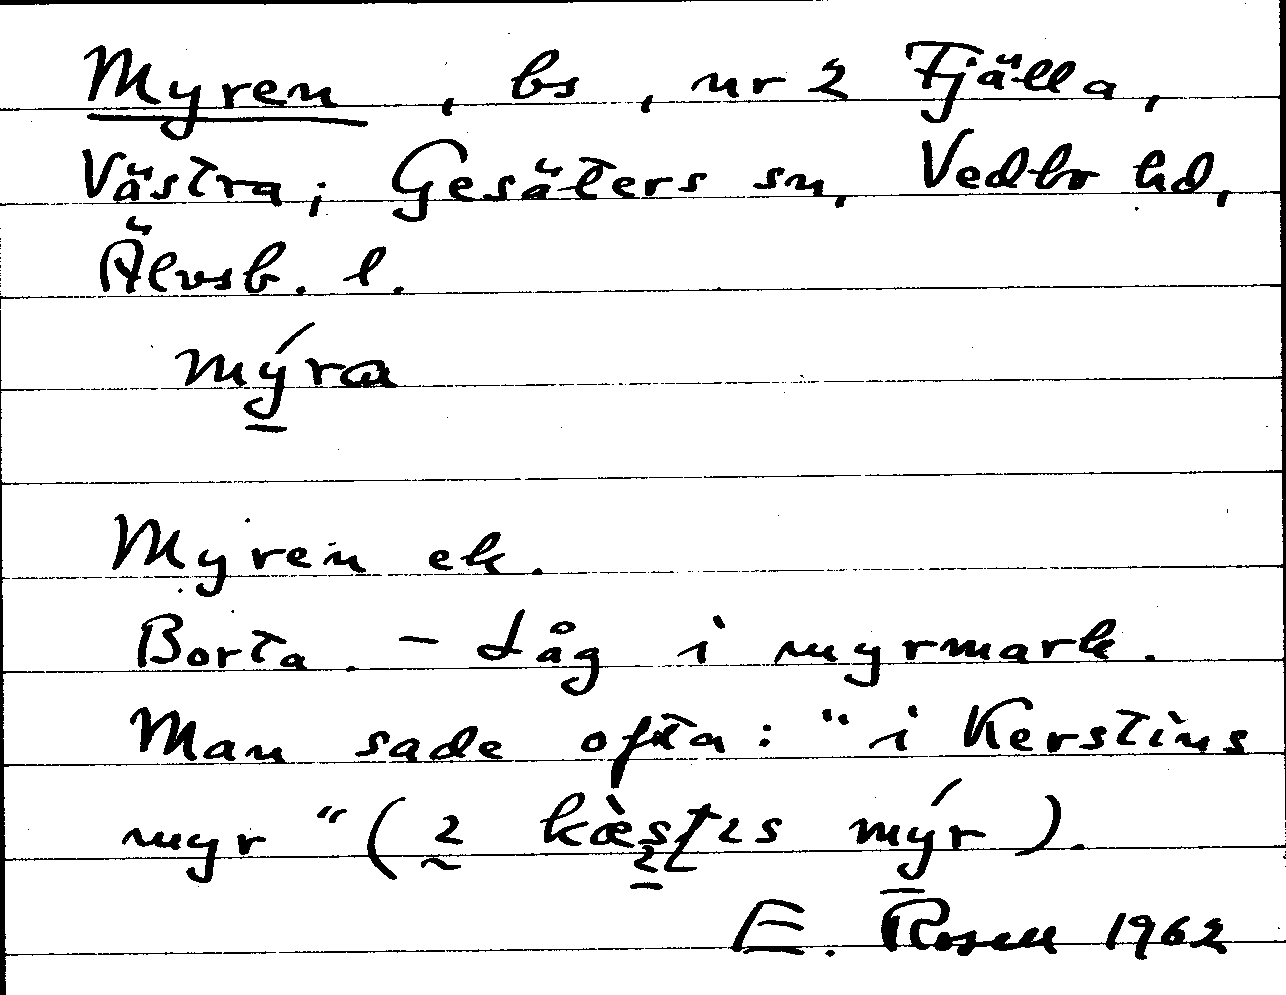 Myren, bs, nr 2 Fjälla,
Västra; Gesäters sn, Vedbo hd,
Älvsb. l.
mýra
Myren ek.
Borta. - Låg i myrmark.
Man sade ofta: "i Kerstins
myr" (ı kæ̀stıs mýr).
E. Rosell 1962